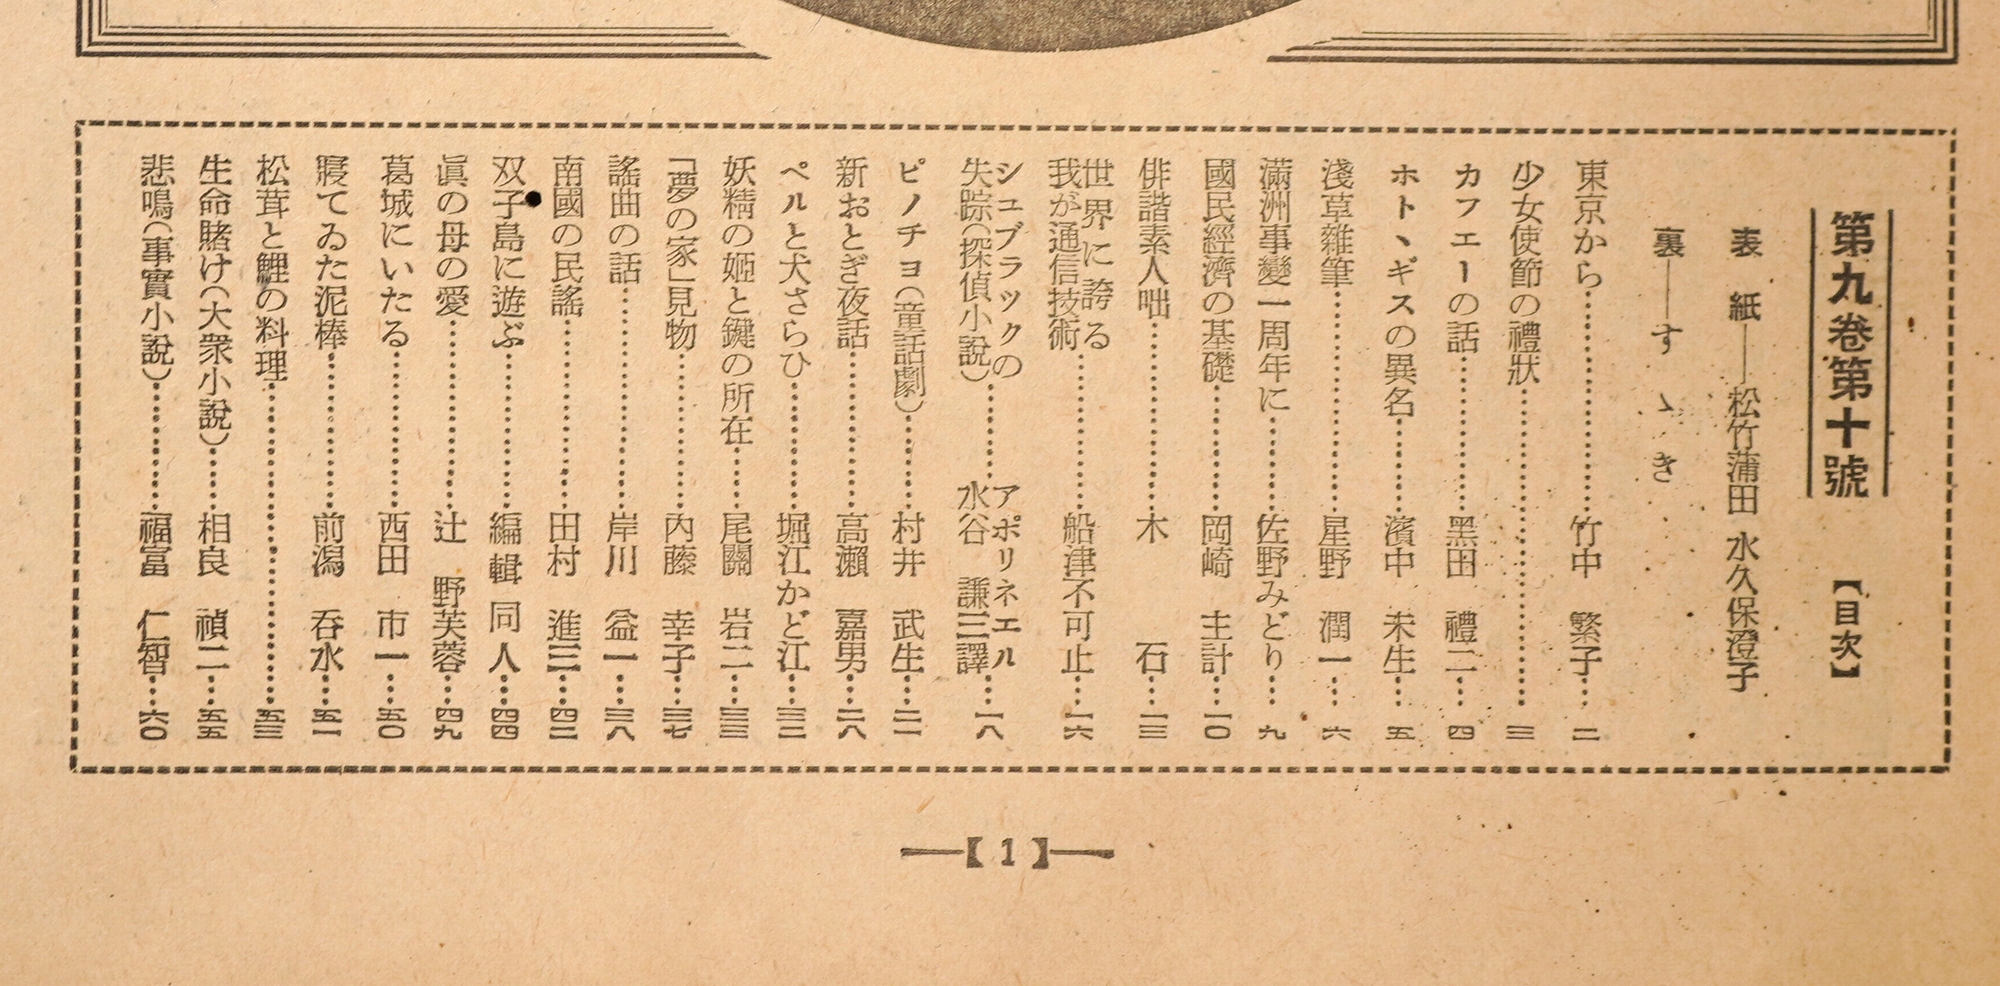 第九卷第十號 【目次】
表紙――松竹蒲田 水久保澄子
裏――すゝき
東京から…………竹中 繁子…二
少女使節の禮狀…………三
カフエーの話…………黑田 禮二…四
ホトヽギスの異名…………濱中 未生…五
淺草雜筆…………星野 潤一…六
滿洲事變一周年に…………佐野みどり…九
國民經濟の基礎…………岡崎 主計…一〇
俳諧素人咄…………木 石…一三
世界に誇る
我が通信技術…………船津不可止…一六
シユブラックの
失踪(探偵小說)…………アポリネエル
水谷 謙三譯…一八
ピノチヨ(童話劇)…………村井 武生…二一
新おとぎ夜話…………高瀨 嘉男…二八
ペルと犬さらひ…………堀江かど江…三二
妖精の姬と鍵の所在…………尾關 岩二…三三
「夢の家」見物…………内藤 幸子…三七
謠曲の話…………岸川 益一…三八
南國の民謠…………田村 進三…四二
双子島に遊ぶ…………編輯同人…四四
眞の母の愛…………辻 野芙蓉…四九
葛城にいたる…………西田 市一…五〇
寢てゐた泥棒…………前潟 呑水…五一
松茸と鯉の料理…………五三
生命賭け(大衆小說)…………相良 禎二…五五
悲鳴(事實小說)…………福富 仁智…六〇
【1】